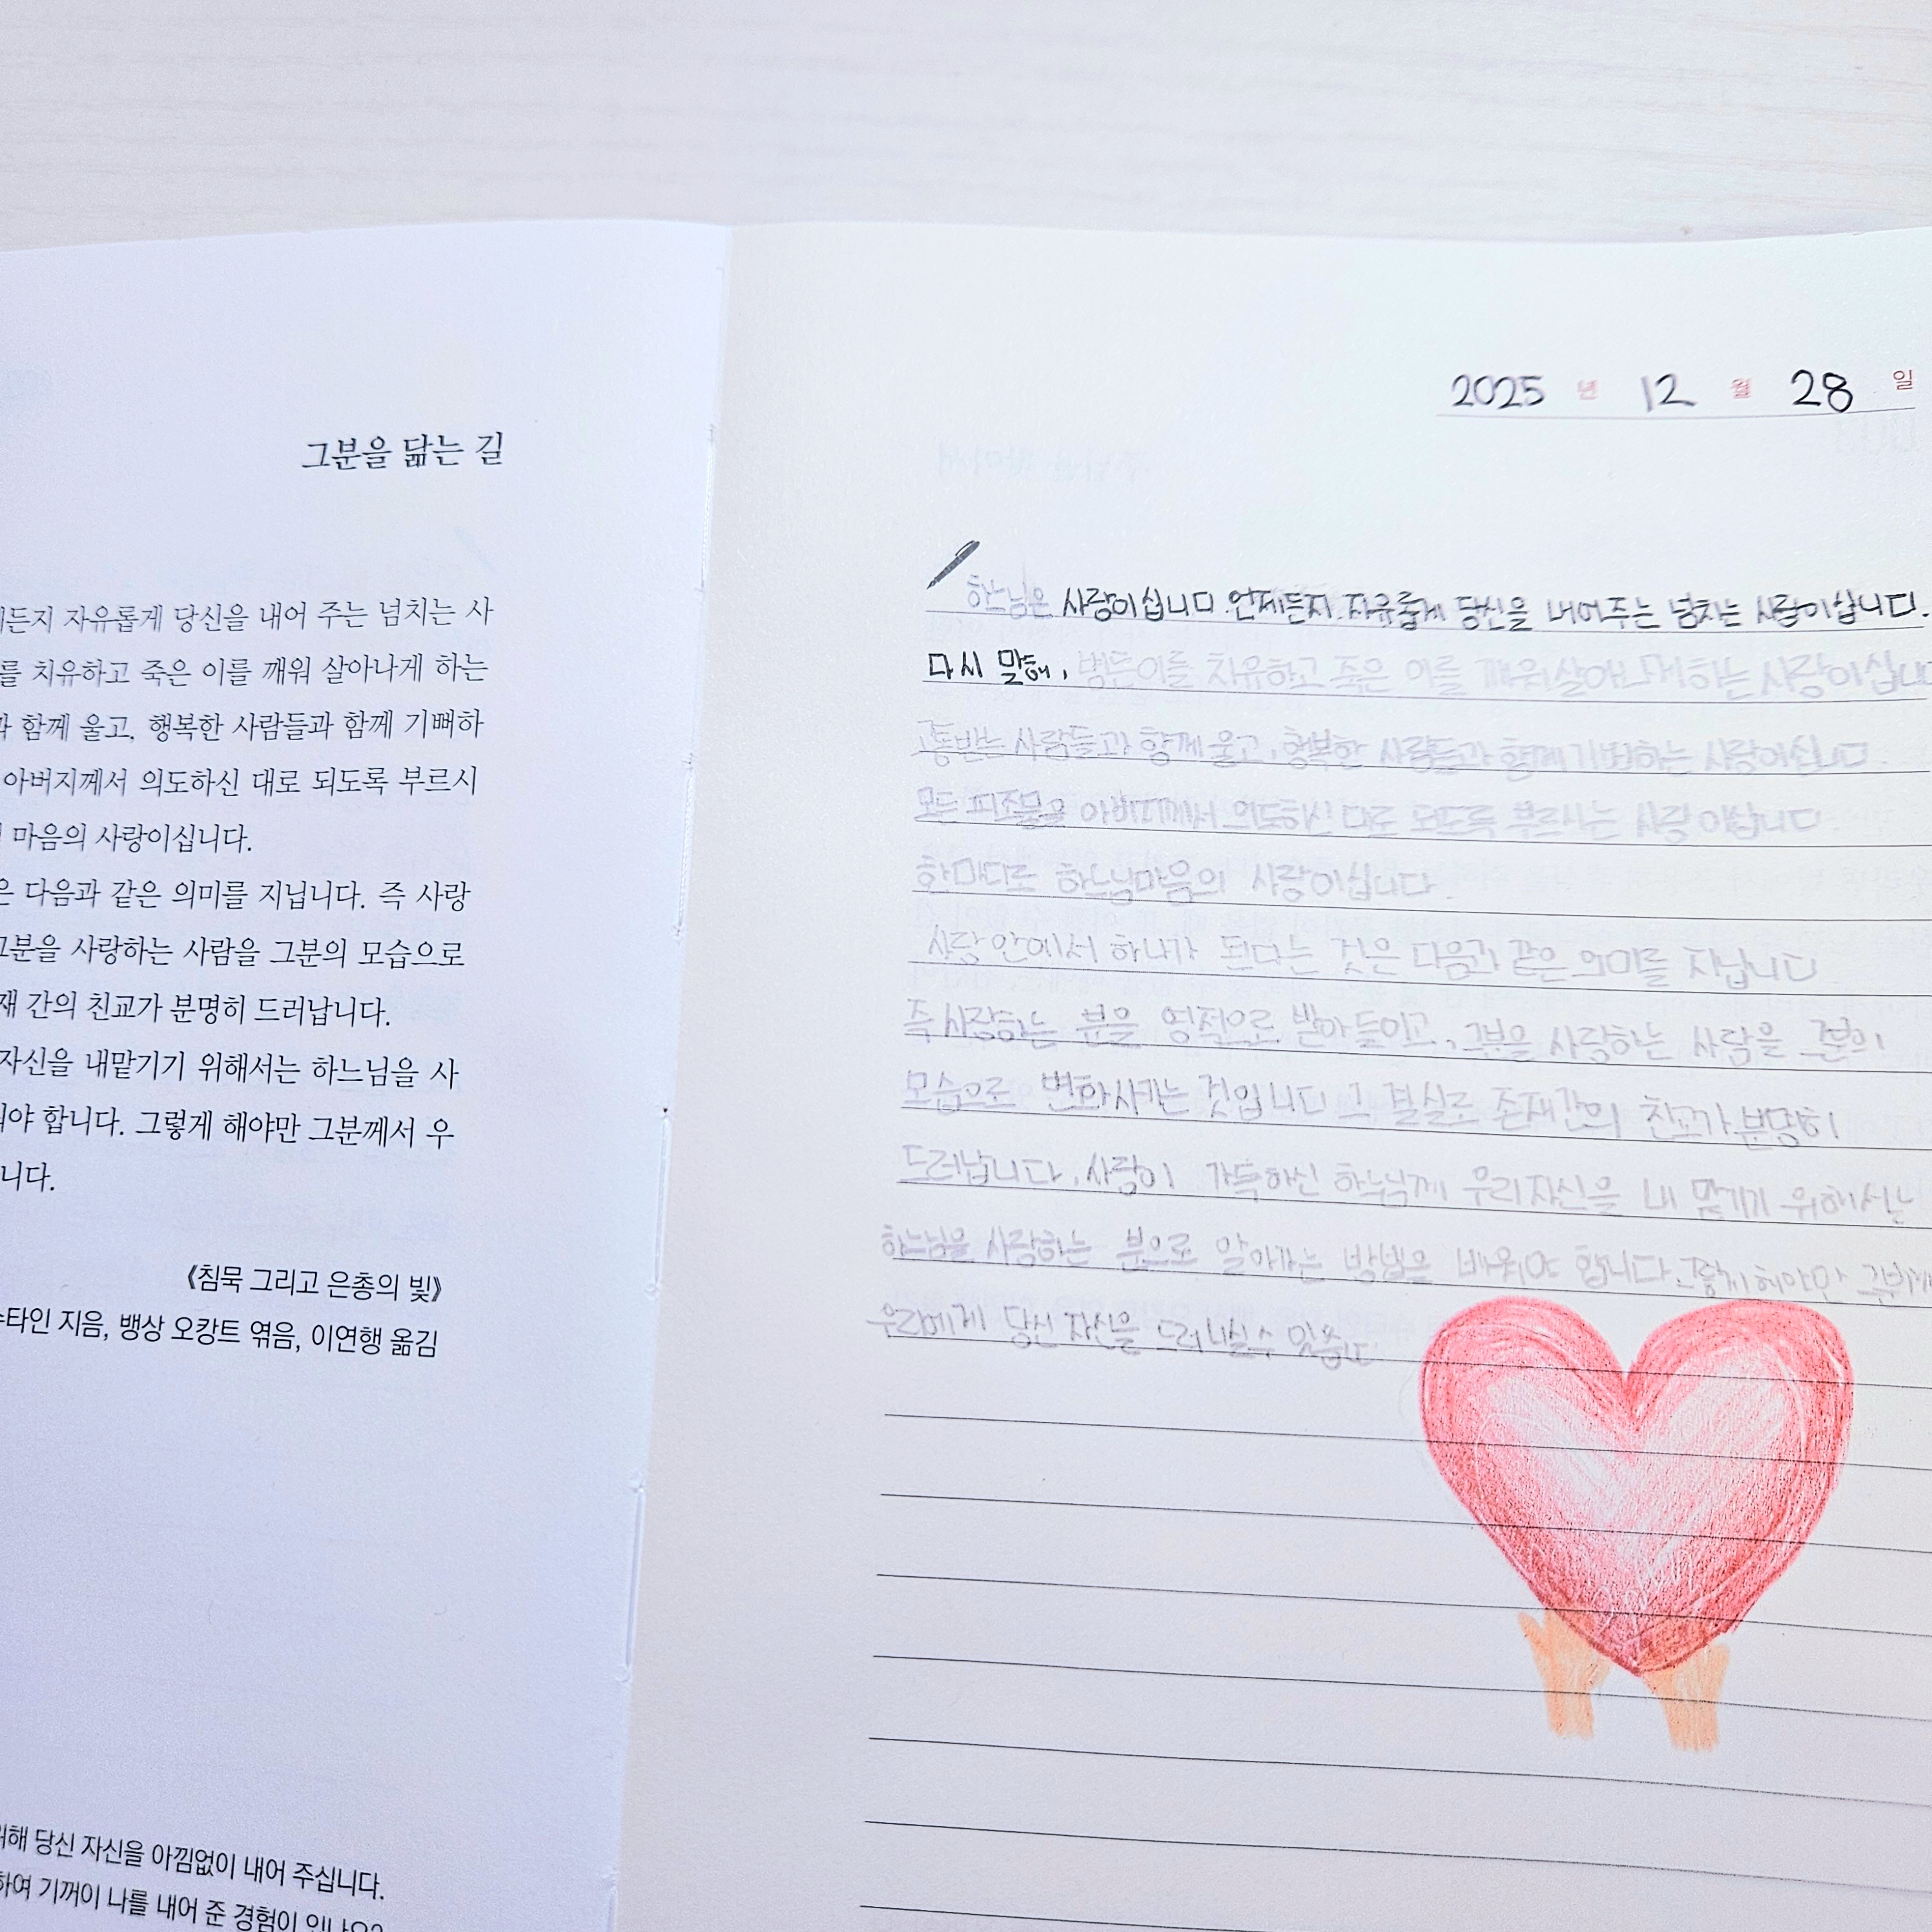 그분을 닮는 길
든지 자유롭게 당신을 내어 주는 넘치는 사
를 치유하고 죽은 이를 깨워 살아나게 하는
함께 울고, 행복한 사람들과 함께 기뻐하
아버지께서 의도하신 대로 되도록 부르시
마음의 사랑이십니다.
은 다음과 같은 의미를 지닙니다. 즉 사랑
그분을 사랑하는 사람을 그분의 모습으로
재 간의 친교가 분명히 드러납니다.
자신을 내맡기기 위해서는 하느님을 사
워야 합니다. 그렇게 해야만 그분께서 우
니다.
《침묵 그리고 은총의 빛》
타인 지음, 뱅상 오캉트 엮음, 이연행 옮김
위해 당신 자신을 아낌없이 내어 주십니다.
하여 기꺼이 나를 내어 준 경험이 있나요?
2025 년 12 월 28 일
하느님은 사랑이십니다. 언제든지 자유롭게 당신을 내어주는 넘치는 사랑이십니다.
다시 말해, 병든이를 치유하고 죽은 이를 깨워 살아나게 하는 사랑이십니다
고통받는 사람들과 함께 울고, 행복한 사람들과 함께 기뻐하는 사랑이십니다.
모든 피조물을 아버지께서 의도하신 대로 되도록 부르시는 사랑이십니다.
한마디로 하느님마음의 사랑이십니다.
사랑 안에서 하나가 된다는 것은 다음과 같은 의미를 지닙니다
즉 사랑하는 분을 영적으로 받아들이고, 그분을 사랑하는 사람을 그분의
모습으로 변화시키는 것입니다 그 결실로 존재간의 친교가 분명히
드러납니다. 사랑이 가득하신 하느님께 우리 자신을 내 맡기기 위해서는
하느님을 사랑하는 분으로 알아가는 방법을 배워야 합니다. 그렇게 해야만 그분께서
우리에게 당신 자신을 드러내실 수 있습니다